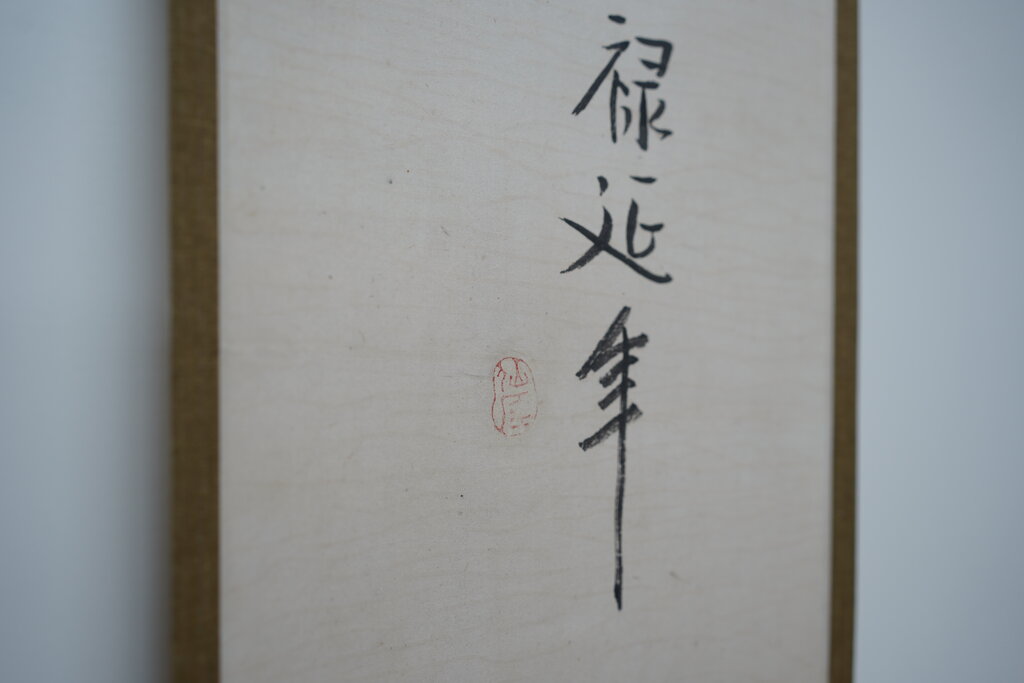 禄延年